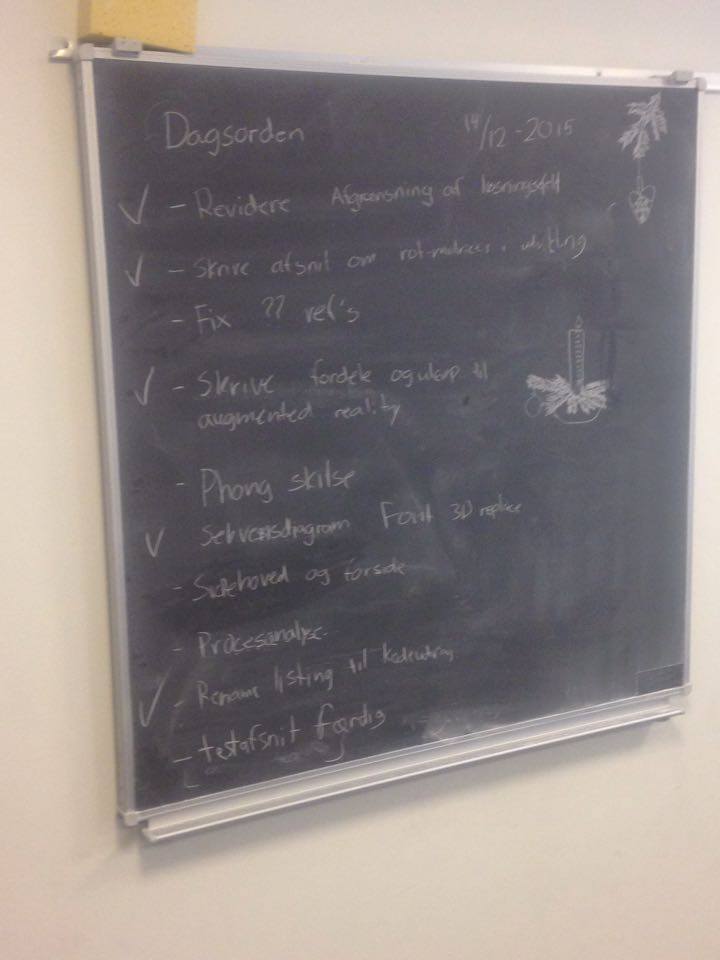 Dagsorden 14/12-2015
- Revidere Afgrænsning af løsningsfelt
- Skrive afsnit om rot-matricer i udvikling
- Fix ?? ref's
- Skrive fordele og ulemp til
augmented reality
- Phong skilse
Sekvensdiagram Font 3D replace
- Sidehoved og forside
- Procesanalyse
- Rename listing til
- testafsnit færdig